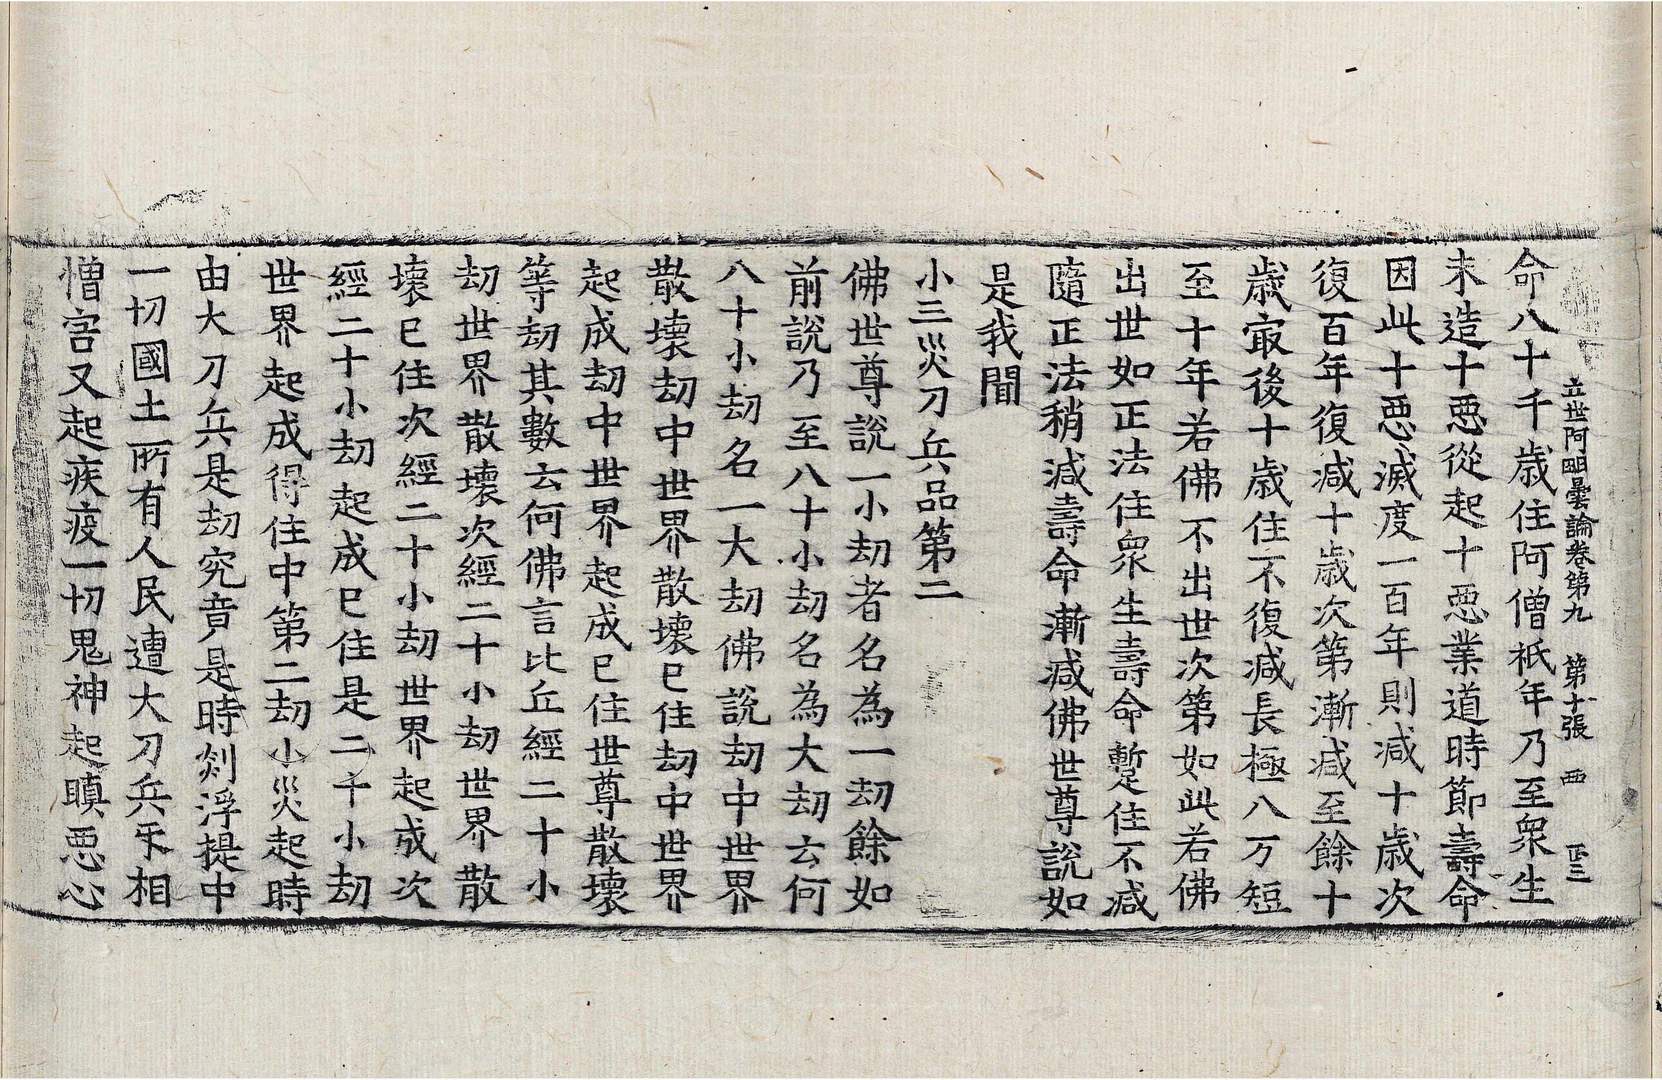 立世阿毗曇論卷第九 第十張 西 正三
命八十千歲住阿僧祇年乃至衆生
未造十惡從起十惡業道時節壽命
因此十惡減度一百年則減十歲次
復百年復減十歲次第漸減至餘十
歲㝡後十歲住不復減長極八万短
至十年若佛不出世次第如此若佛
出世如正法住衆生壽命暫住不減
隨正法稍減壽命漸減佛世尊說如
是我聞
小三灾刀兵品第二
佛世尊說一小劫者名為一劫餘如
前說乃至八十小劫名為大劫云何
八十小劫名一大劫佛說劫中世界
散壞劫中世界散壞已住劫中世界
起成劫中世界起成已住世尊散壞
等劫其數云何佛言比丘經二十小
劫世界散壞次經二十小劫世界散
壞已住次經二十小劫世界起成次
經二十小劫起成已住是二十小劫
世界起成得住中第二劫小災起時
由大刀兵是劫究竟是時剡浮提中
一切國土所有人民遭大刀兵手相
憎害又起疾疫一切鬼神起瞋惡心